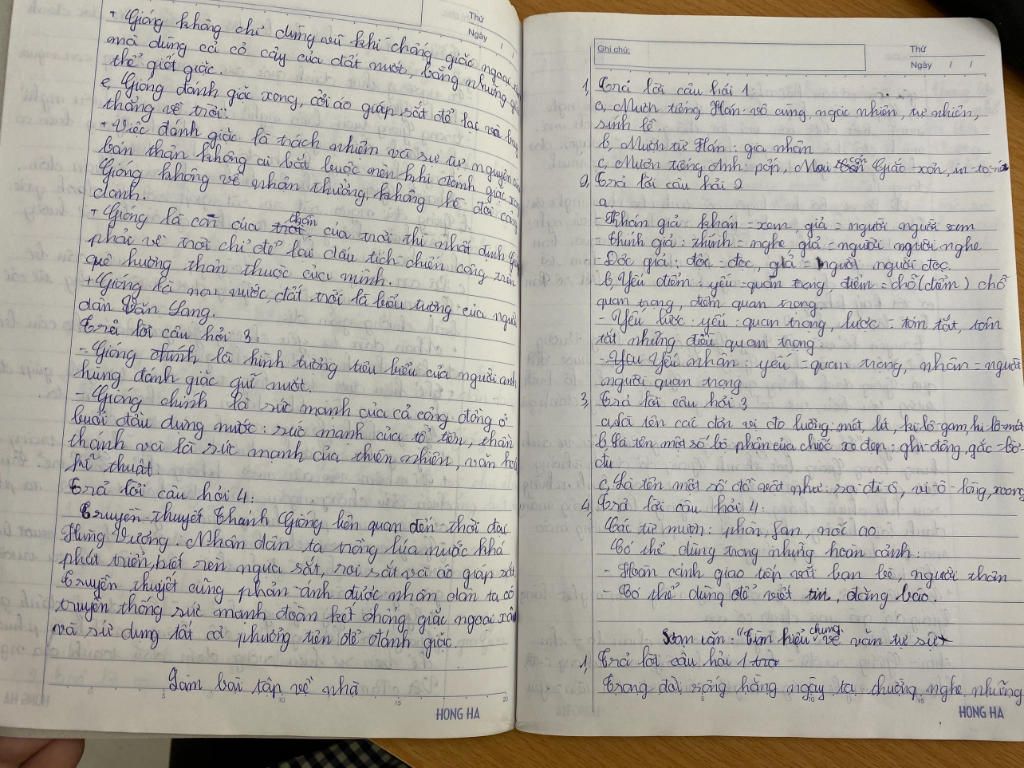 Thứ
Ngày / /
+ Gióng không chỉ dùng vũ khí chống giặc ngoại
mà dùng cả cỏ cây của đất nước, bằng những gì
thể giết giặc.
e, Gióng đánh giặc xong, cởi áo giáp sắt để lại và bay
thẳng về trời:
+ Việc đánh giặc là trách nhiệm và sự tự nguyện của
bản thân không ai bắt buộc nên khi đánh giặc xong
Gióng không về nhận thưởng, không hề đòi công
danh.
+ Gióng là con của thần của trời thì nhất định
phải về trời chỉ để lại dấu tích chiến công trên
quê hương thân thuộc của mình.
+ Gióng là non nước, đất trời là biểu tượng của người
dân Văn Lang.
Trả lời câu hỏi 3:
- Gióng chính là hình tượng tiêu biểu của người anh
hùng đánh giặc giữ nước.
- Gióng chính là sức mạnh của cả cộng đồng ở
buổi đầu dựng nước: sức mạnh của tổ tiên, thần
thánh và là sức mạnh của thiên nhiên, văn hoá
kĩ thuật
Trả lời câu hỏi 4:
Truyền thuyết Thánh Gióng liên quan đến thời đại
Hùng Vương. Nhân dân ta trồng lúa nước khá
phát triển, biết rèn ngựa sắt, roi sắt và áo giáp sắt
Truyền thuyết cũng phản ánh được nhân dân ta có
truyền thống sức mạnh đoàn kết chống giặc ngoại xâm
và sử dụng tất cả phương tiện để đánh giặc.
Làm bài tập về nhà
HONG HA
Ghi chú:
Thứ
Ngày / /
1, Trả lời câu hỏi 1:
a, Mượn tiếng Hán: vô cùng, ngạc nhiên, tự nhiên,
sính lễ.
b, Mượn từ Hán: gia nhân
c, Mượn tiếng Anh: pốp, Mai-cơn Giắc-xơn, in-tơ-nét
2, Trả lời câu hỏi 2
a,
- Khán giả: khán = xem, giả = người người xem
- Thính giả: thính = nghe giả = người người nghe
- Độc giả: độc = đọc, giả = người người đọc.
b, Yếu điểm: yếu = quan trọng, điểm = chỗ (điểm) chỗ
quan trọng, điểm quan trọng.
- Yếu lược: yếu: quan trọng, lược = tóm tắt, tóm
tắt những điều quan trọng.
- Yếu nhân: yếu = quan trọng, nhân = người
người quan trọng
3, Trả lời câu hỏi 3
a, Là tên các đơn vị đo lường: mét, lít, ki-lô-gam, ki-lô-mét
b, Là tên một số bộ phận của chiếc xe đạp: ghi-đông, gác-đờ-
bu
c, Là tên một số đồ vật như: ra-đi-ô, vi-ô-lông, xoong
4, Trả lời câu hỏi 4:
Các từ mượn: phôn, fan, nốc ao
Có thể dùng trong những hoàn cảnh:
- Hoàn cảnh giao tiếp với bạn bè, người thân
- Có thể dùng để viết tin, đăng báo.
Soạn văn: "Tìm hiểu chung về văn tự sự"
1, Trả lời câu hỏi 1
Trong đời sống hằng ngày ta thường nghe những
HONG HA